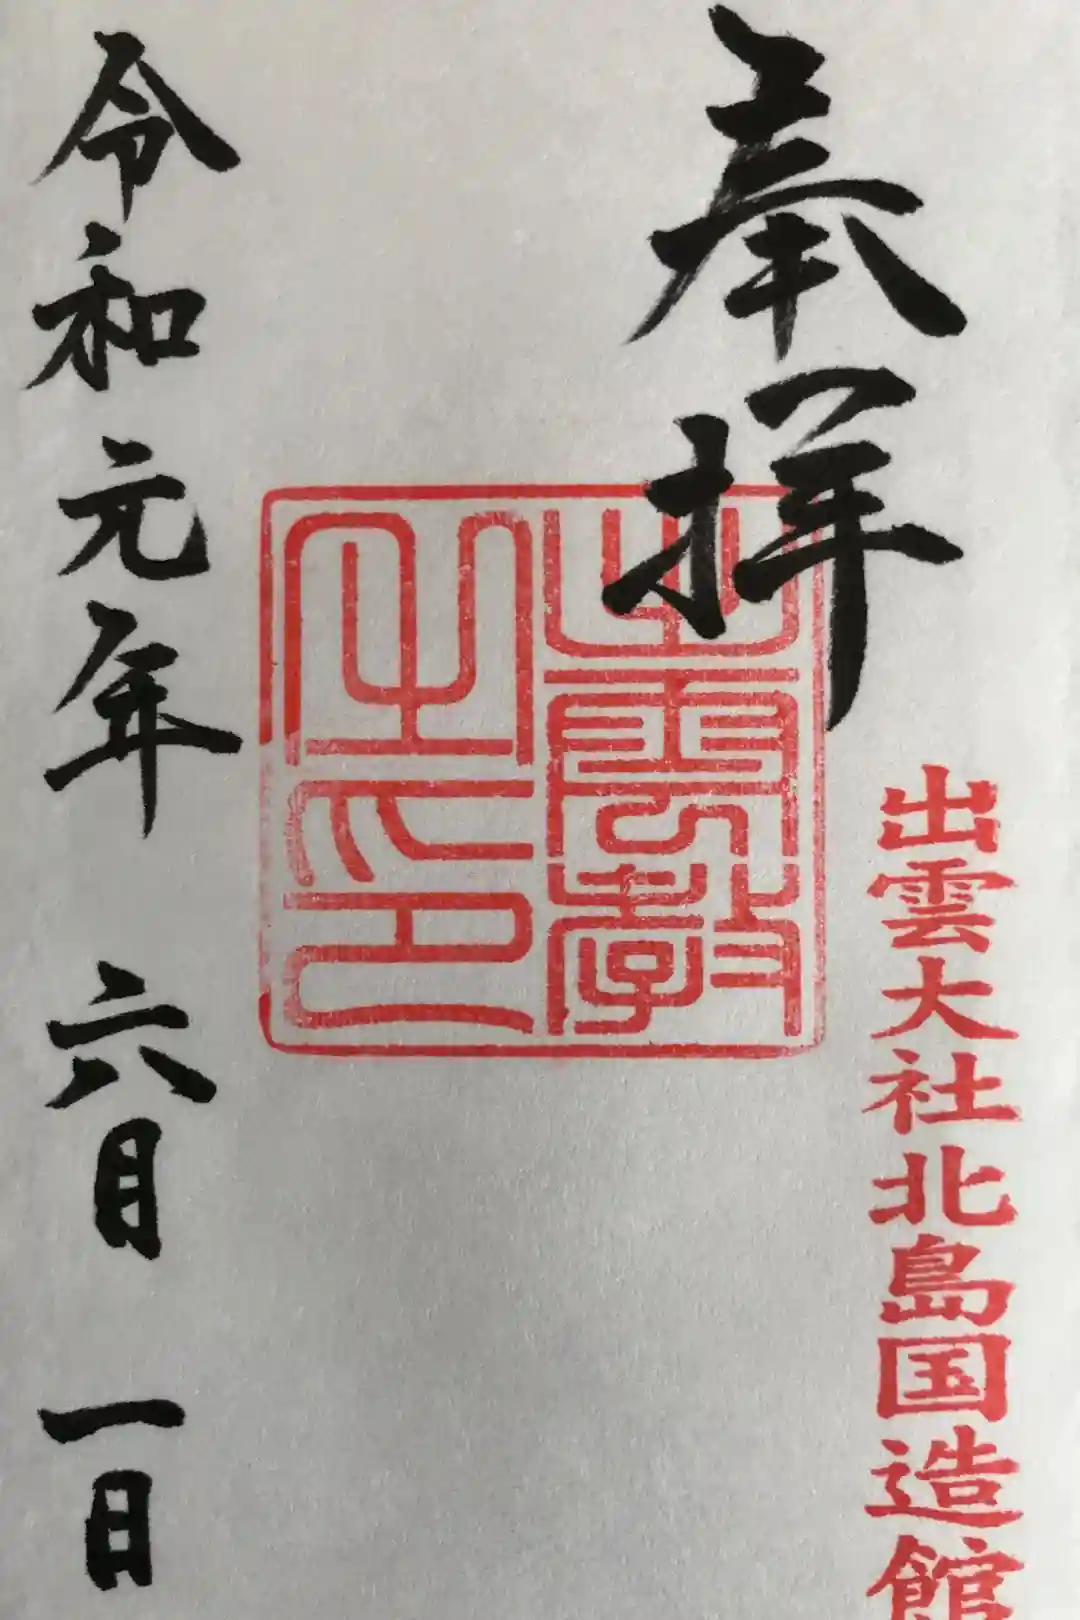 奉拝
出雲大社北島国造館
出雲教
之印
令和元年 六月 一日